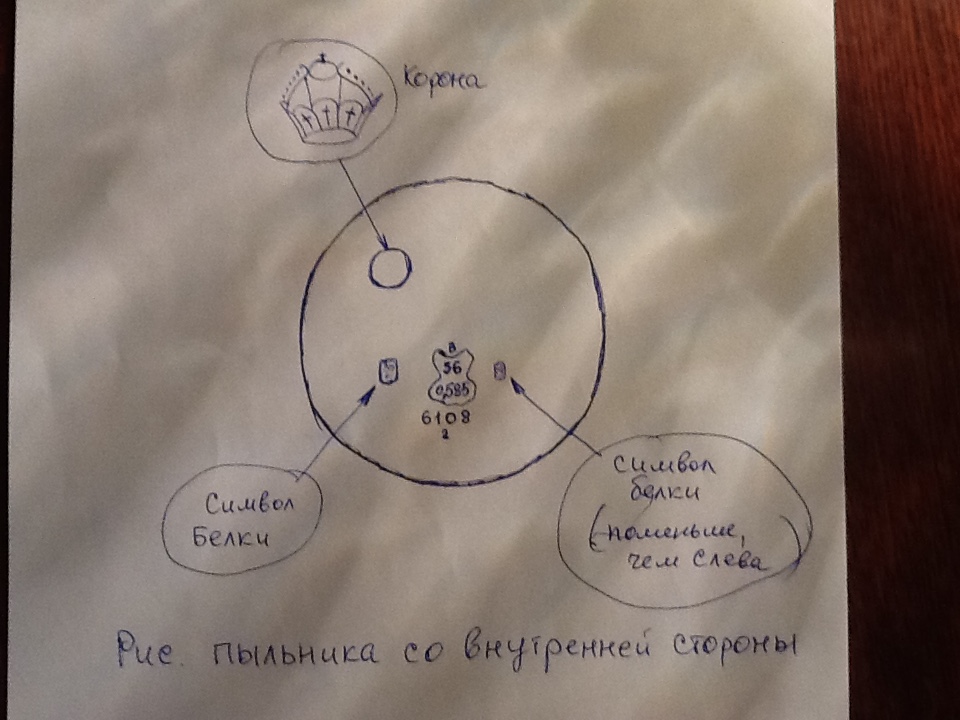 Корона
В
56
0,585
6108
2
Символ
Белки
символ
белки
(поменьше,
чем слева)
Рис. пыльника со внутренней стороны